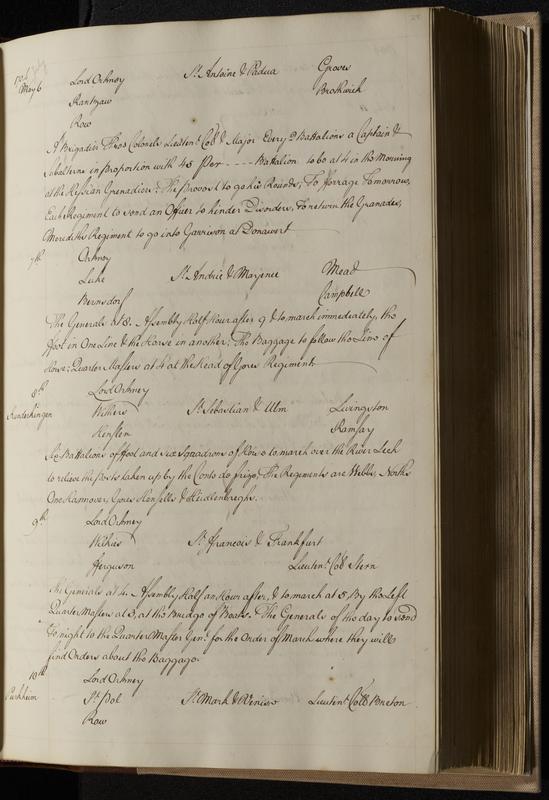 1704
May 6 Lord Orkney St. Antoine & Padua Groves
Rantzaw Brothwick
Row
A Brigadier Three Colonels Lieutent. Coll. & Major Every 2 Battalions a Captain &
Subalterns in proportion with 45 per ---- Battalion to be at 4 in the Morning
at the Hessian Grenadiers: The Provost to go his Rounds, To fforrage Tomorrow,
Each Regiment to send an Officer to hinder Disorders, To return the Granades,
Merediths Regiment to go into Garrison at Donawert
7th Orkney
Luke St. Andrie & Mayence Mead
Bernsdorf Campbell
The Generale at 8. Assembly Half Hour after 9 & to march immediately, the
ffoot in One Line & the Horse in another; The Baggage to follow the Line of
Horse; Quarter Masters at 4 at the Head of Yours Regiment
8th Lord Orkney
Withers St. Sebastian & Ulm Livingston
Ramsay
Six Battalions of ffoot and six Squadrons of Horse to march over the River Lech
to relieve the Posts taken up by the Comte de The Regiments are Webbs, Norths
One Hannover, Yours &
9th Lord Orkney
Withers St. ffrancois & Frankfurt
fferguson Lieutent. Coll Stern
The Generale at 4. Assembly Half an Hour after, & to march at 5, By the Left
Quarter Masters at 3, at the Bridge of Boats. The Generals of the day to send
To night to the Quarter Master Genl. for the Order of March where they will
find Orders about the Baggage.
10th Lord Orkney
St. Pol St. Mark & Venise Lieutent. Coll
Row